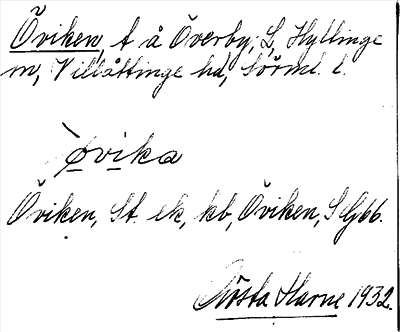 Öviken, t å Överby, L, Hyllinge
m, Villåttinge hd, Sörml. l.
`øvika
Öviken, St. ek, kb, Öviken, S G66.
Gösta Harne 1932.